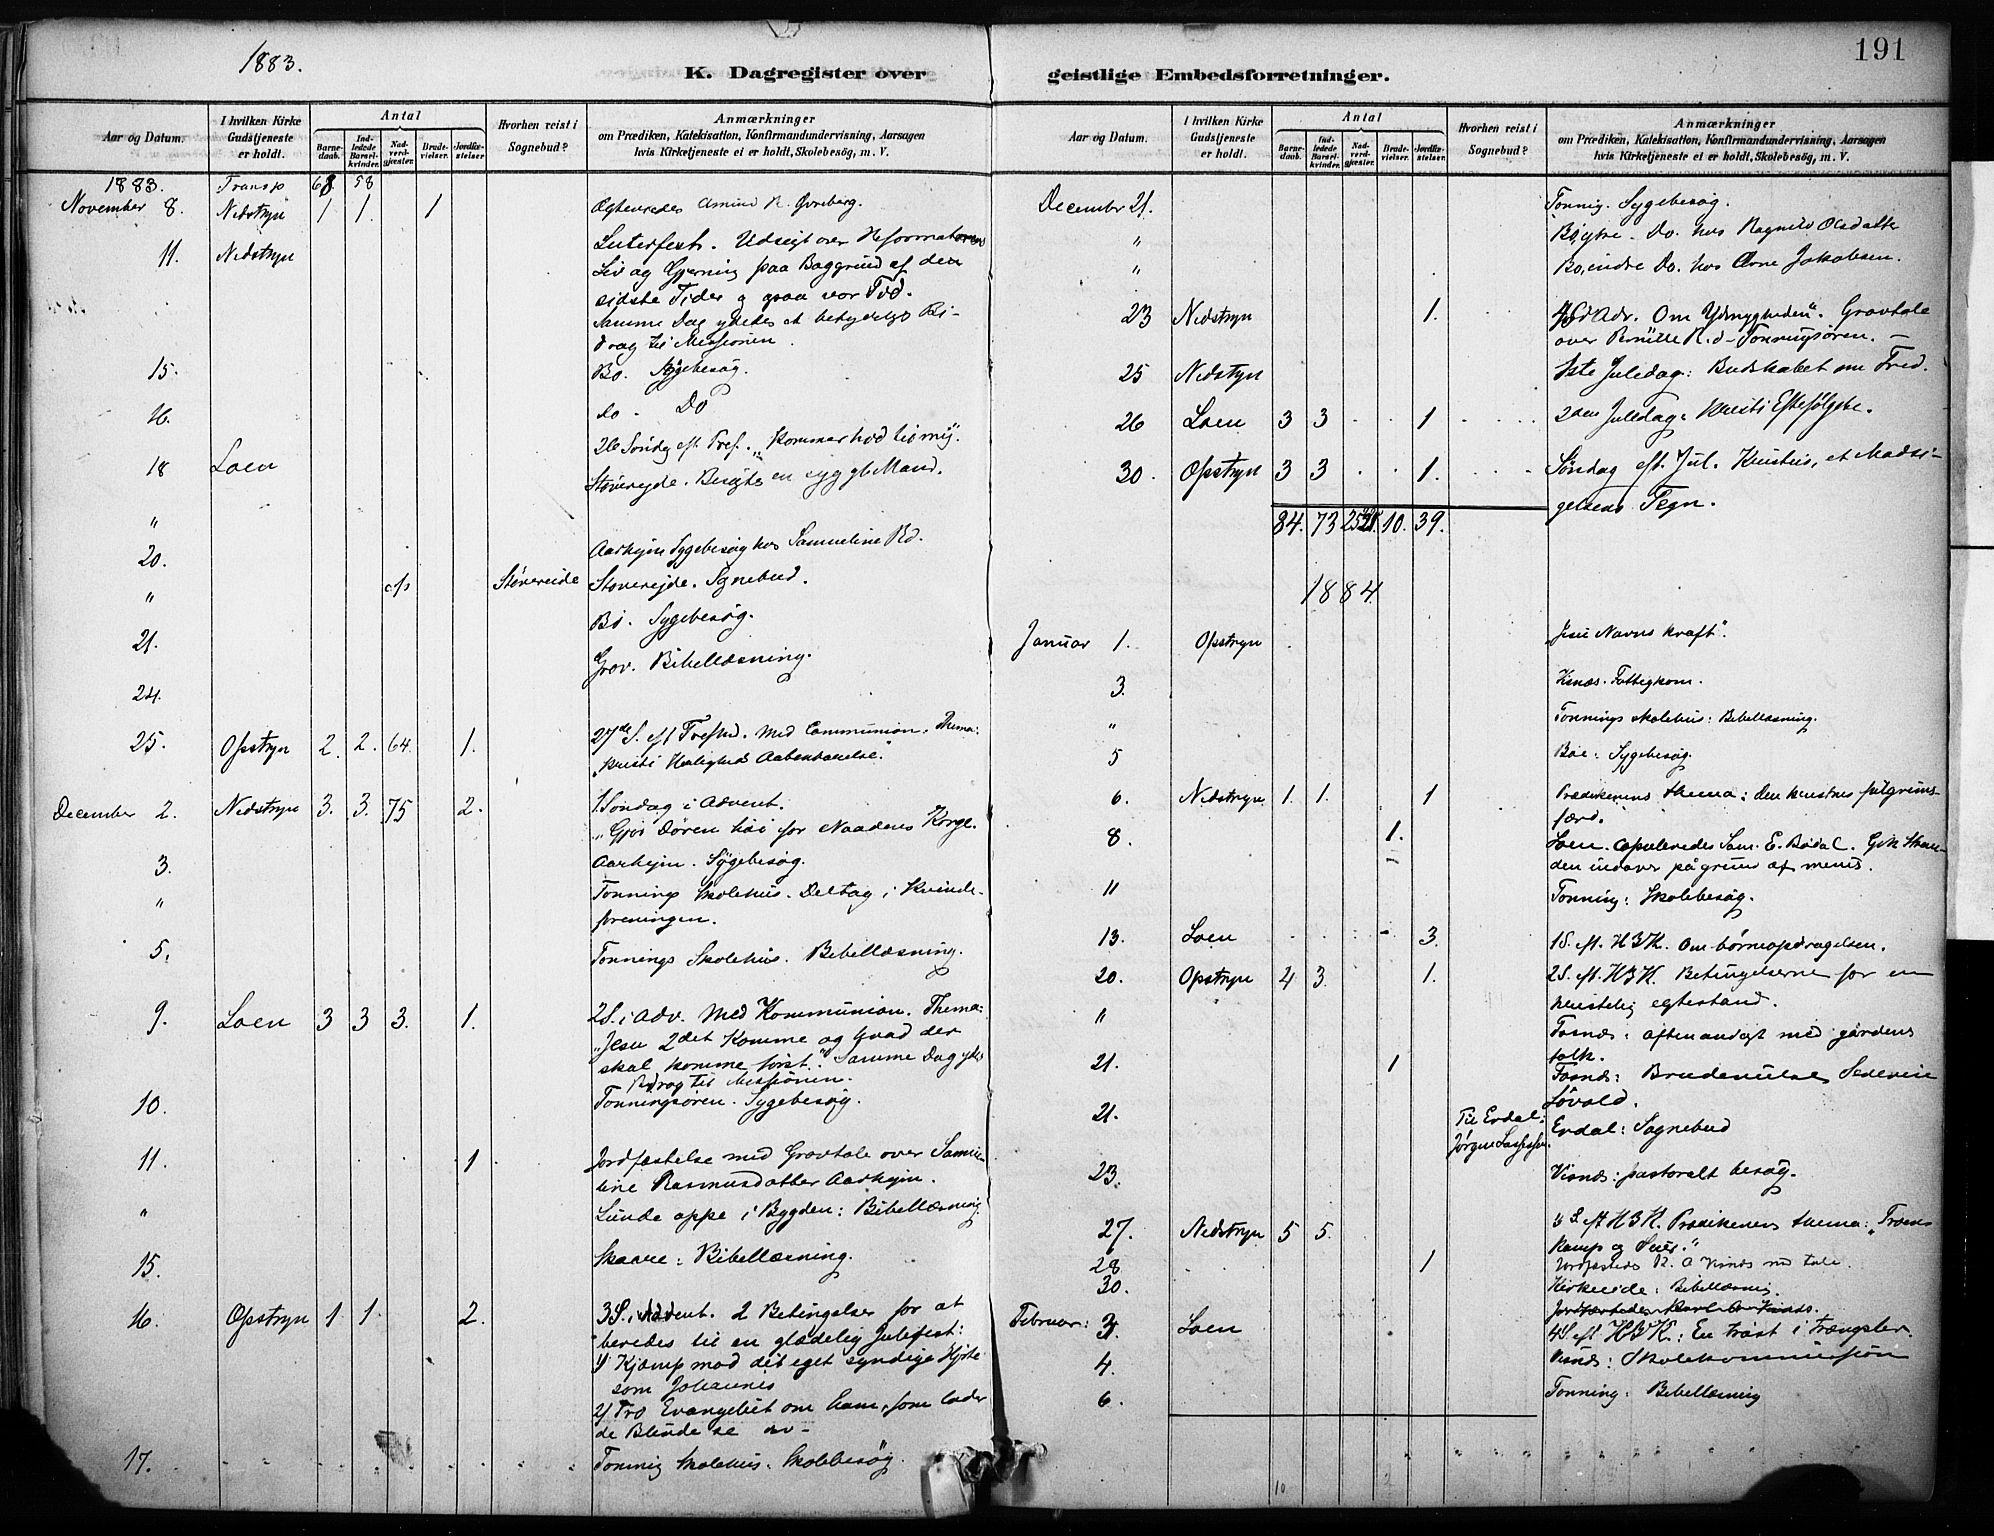 1883.
K. Dagregister over
Aar og Datum.
I hvilken Kirke Gudstjeneste er holdt.
Antal
Barnedaab.
Indledede Barselkvinder.
Nadverdgjester.
Brudevielser.
Jordfæstelser
Hvorhen reist i Sognebud?
Anmærkninger
om Prædiken, Katekisation, Konfirmandundervisning, Aarsagen
hvis Kirketjeneste ei er holdt, Skolebesög, m. V.
1883. Transp 68 58
November 8. Nedstryn 1 1. 1
11. Nedstryn Luterfest. Udsigt over Reformatorens
Liv og Gjerning paa Baggrund af den
sidste Tider og ogsaa vor Tid.
Samme Dag ydedes et betydeligt Bi-
drag til Missionen.
15. Bö. Sygebesøg.
16. do - Do
18 Loen 26 Søndag eft. Tref. "Kommer hid til mig.
" Støvereide. Besøgte en syg gl. Mand.
20. Aarheim Sygebesøg hos Samueline Rd.
" c/s Støvereide Støvereide. Sognebud.
21. Bö. Sygebesøg.
24. Grov. Bibellæsning.
25. Opstryn 2. 2. 64. 1. 27de S. eft Trefhed. Med Communion. Thema:
"Kristi Herligheds Aabenbarelse."
December 2. Nedstryn 3. 3. 75 2. 1 Søndag i Advent.
"Gjör Døren høi for Naadens Konge.
3. Aarheim. Sygebesøg.
" Tonning Skolehus. Deltog i Kvinde-
foreningen.
5. Tonnings Skolehus. Bibellæsning.
9. Loen 3 3 3. 1. 2 S. i Adv. Med Kommunion. Thema:
"Jesu 2det Komme og hvad der
skal komme først." Samme Dag ydes
Bidrag til Missionen.
10. Tonningsøren. Sygebesøg.
11. 1 Jordfæstelse med Gravtale over Samue-
line Rasmusdatter Aarheim.
" Lunde oppe i Bygden: Bibellæsning.
15. Skaare: Bibellæsning.
16. Opstryn 1 1. 2. 3 S. i Advent. 2 Betingelser for at
beredes til en glædelig Julefest:
1/ Kjæmp mod dit eget syndige Hjerte
som Johannes
2/ Tro Evangeliet om ham, som lader
de Blinde se
17. Tonning Skolehus. Skolebesøg.
191
geistlige Embedsforretninger.
Aar og Datum.
I hvilken Kirke Gudstjeneste er holdt.
Antal
Barnedaab.
Indledede Barselkvinder.
Nadverdgjester.
Brudevielser.
Jordfæstelser.
Hvorhen reist i Sognebud?
Anmærkninger
om Prædiken, Katekisation, Konfirmandundervisning, Aarsagen
hvis Kirketjeneste ei er holdt, Skolebesög, m. V.
December 21. Tonnig. Sygebesøg.
" Bö, ytre. Do. hos Ragnild Olsdatter
" Bö, indre Do. hos Arne Jakobsen.
23 Nedstryn 1. 4 S. i Adv. Om Ydmygheden". Gravtale
over R. d- Tonningsøren.
25 Nedstryn 1ste Juledag: Budskabet om Fred.
26 Loen 3 3 1 2den Juledag: Kristi Efterfølgelse.
30. Opstryn 3 3 1. Søndag eft. Jul. Kristus, et Modsi-
gelsens Tegn.
84. 73 10. 39.
1884.
Januar 1. Opstryn "Jesu Navns kraft".
3. Visnæs. Fattigkom.
" Tonnings skolehus: Bibellæsning.
5 Böe: Sygebesøg.
6. Nedstryn. 1. 1. 1 Prædikenens thema: den kristnes pilgrims-
færd.
8. 1. Loen. Copuleredes Sam. E. Bødal. Gik Stran-
den indover på grund af menis.
11 Tonning: Skolebesøg.
13. Loen 3. 1 S. eft. H 3 K. Om børneopdragelsen.
20. Opstryn 4 3. 1. 2 S. eft. H 3 K. Betingelserne for en
kristelig egtestand.
" Tosnæs: aftenandagt med gårdens
folk.
21. 1 Tosnæs: Brudevielse
Løvold.
21. Til Erdal: Erdal: Sognebud
Jørgen
23. Visnæs: pastoralt besøg.
27. Nedstryn 5 5. 3 S. eft H 3 K. Prædikenens thema: "Troens
Kamp og Seier."
28 1 Jordfæstedes R. A Visnæs med tale.
30. Kirkeeide: Bibellæsning.
Februar: 3. Loen 4 S. eft H 3 K.: En trøst i trængsler.
4. Visnæs: Skolekommission
6. Tonning: Bibellæsning
10